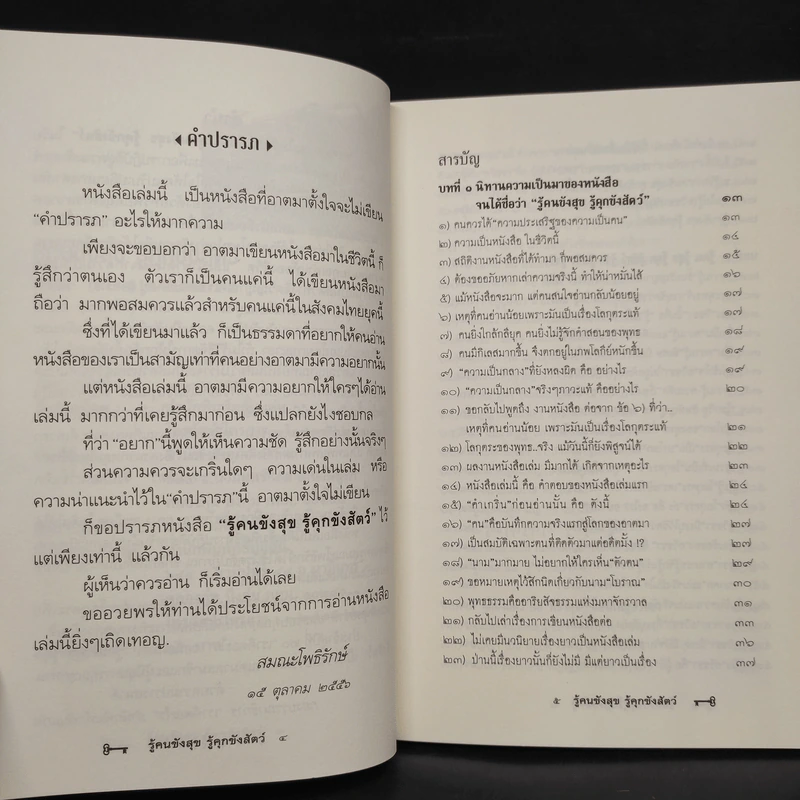 คำปรารภ
หนังสือเล่มนี้ เป็นหนังสือที่อาตมาตั้งใจจะไม่เขียน
“คำปรารภ” อะไรให้มากความ
เพียงจะขอบอกว่า อาตมาเขียนหนังสือมาในชีวิตนี้ ก็
รู้สึกว่าตนเอง ตัวเราก็เป็นคนแค่นี้ ได้เขียนหนังสือมา
ถือว่า มากพอสมควรแล้วสำหรับคนแค่นี้ในสังคมไทยยุคนี้
ซึ่งที่ได้เขียนมาแล้ว ก็เป็นธรรมดาที่อยากให้คนอ่าน
หนังสือของเราเป็นสามัญเท่าที่คนอย่างอาตมามีความอยากนั้น
แต่หนังสือเล่มนี้ อาตมามีความอยากให้ใครๆได้อ่าน
เล่มนี้ มากกว่าที่เคยรู้สึกมาก่อน ซึ่งแปลกยังไงชอบกล
ที่ว่า “อยาก”นี้พูดให้เห็นความชัด รู้สึกอย่างนั้นจริงๆ
ส่วนความควรจะเกริ่นใดๆ ความเด่นในเล่ม หรือ
ความน่าแนะนำไว้ใน“คำปรารภ”นี้ อาตมาตั้งใจไม่เขียน
ก็ขอปรารภหนังสือ “รู้คนขังสุข รู้คุกขังสัตว์” ไว้
แต่เพียงเท่านี้ แล้วกัน
ผู้เห็นว่าควรอ่าน ก็เริ่มอ่านได้เลย
ขออวยพรให้ท่านได้ประโยชน์จากการอ่านหนังสือ
เล่มนี้ยิ่งๆเถิดเทอญ.
สมณะโพธิรักษ์
๑๕ ตุลาคม ๒๕๕๖
รู้คนขังสุข รู้คุกขังสัตว์ ๔
สารบัญ
บทที่ ๑ นิทานความเป็นมาของหนังสือ
จนได้ชื่อว่า “รู้คนขังสุข รู้คุกขังสัตว์” ๑๓
๑) คนควรได้“ความประเสริฐของความเป็นคน” ๑๓
๒) ความเป็นหนังสือ ในชีวิตนี้ ๑๔
๓) สถิติงานหนังสือที่ได้ทำมา ก็พอสมควร ๑๕
๔) ต้องขออภัยหากเล่าความจริงนี้ ทำให้น่าหมั่นไส้ ๑๖
๕) แม้หนังสือจะมาก แต่คนสนใจอ่านกลับน้อยอยู่ ๑๗
๖) เหตุที่คนอ่านน้อยเพราะมันเป็นเรื่องโลกุตระแท้ ๑๗
๗) คนยิ่งใกล้กลียุค คนยิ่งไม่รู้จักคำสอนของพุทธ ๑๘
๘) คนมีกิเลสมากขึ้น จึงตกอยู่ในภพโลกีย์หนักขึ้น ๑๙
๙) “ความเป็นกลาง”ที่ยังหลงผิด คือ อย่างไร ๑๙
๑๐) “ความเป็นกลาง”จริงๆภาวะแท้ คืออย่างไร ๒๐
๑๑) ขอกลับไปพูดถึง งานหนังสือ ต่อจาก ข้อ ๖) ที่ว่า..
เหตุที่คนอ่านน้อย เพราะมันเป็นเรื่องโลกุตระแท้ ๒๑
๑๒) โลกุตระของพุทธ..จริง แม้วันนี้ก็ยังพิสูจน์ได้ ๒๒
๑๓) ผลงานหนังสือเล่ม มีมากได้ เกิดจากเหตุอะไร ๒๓
๑๔) หนังสือเล่มนี้ คือ คำตอบของหนังสือเล่มแรก ๒๔
๑๕) “คำเกริ่น”ก่อนอ่านนั้น คือ ดังนี้ ๒๔
๑๖) “คน”คือบันทึกความจริงแรกสู่โลกของอาตมา ๒๗
๑๗) เป็นสมบัติเฉพาะตนที่คิดตัวมาแต่อดีตมั้ง !? ๒๗
๑๘) “นาม”มากมาย ไม่อยากให้ใครเห็น“ตัวตน” ๒๙
๑๙) ขอหมายเหตุไว้สักนิดเกี่ยวกับนาม“โบราณ” ๓๐
๒๐) พุทธธรรมคืออาริยสัจธรรมแห่งมหาจักรวาล ๓๑
๒๑) กลับไปเล่าเรื่องการเขียนหนังสือต่อ ๓๓
๒๒) ไม่เคยมีนวนิยายเรื่องยาวเป็นหนังสือเล่ม ๓๖
๒๓) ป่านนี้เรื่องยาวนั้นก็ยังไม่มี มีแต่ยาวเป็นเรื่อง ๓๗
๕ รู้คนขังสุข รู้คุกขังสัตว์